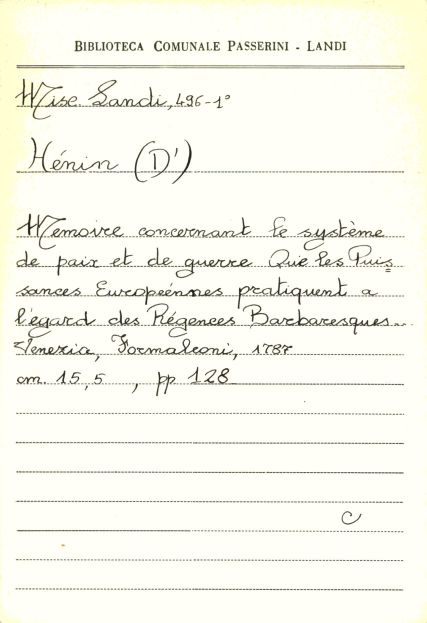 BIBLIOTECA COMUNALE PASSERINI - LANDI
Misc. Landi, 496-1°
Hénin (D')
Memoire concernant le système
de paix et de guerre Que les Puis=
sances Européénnes pratiquent a
l'égard des Régences Barbaresques...
Venezia, Formaleoni, 1787
cm. 15,5 , pp 128
C